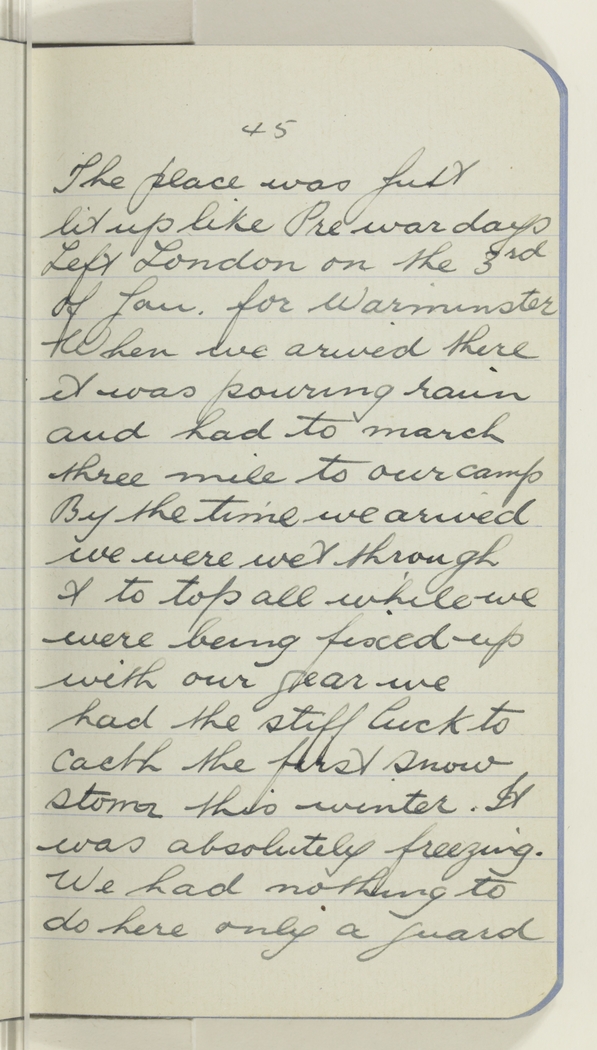 45
The place was just
lit up like Pre war days
Left London on the 3rd
of Jan. for Warminster
When we arived there
it was pouring rain
and had to march
three mile to our camp
By the time we arived
we were wet through
& to top all while we
were being fixed-up
with our gear we
had the stiff luck to
cacth the first snow
stom this winter. It
was absolutely freezing.
We had nothing to
do here only a guard